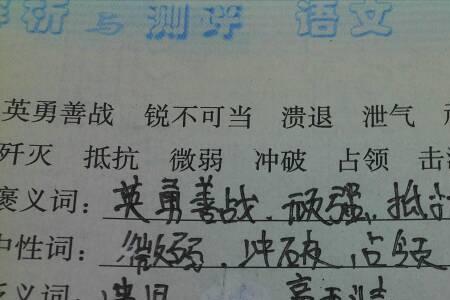 评析与测评 语文
英勇善战 锐不可当 溃退 泄气
歼灭 抵抗 微弱 冲破 占领 击
褒义词：英勇善战、顽强、抵抗
中性词：微弱、冲破、占领
贬义词：溃退